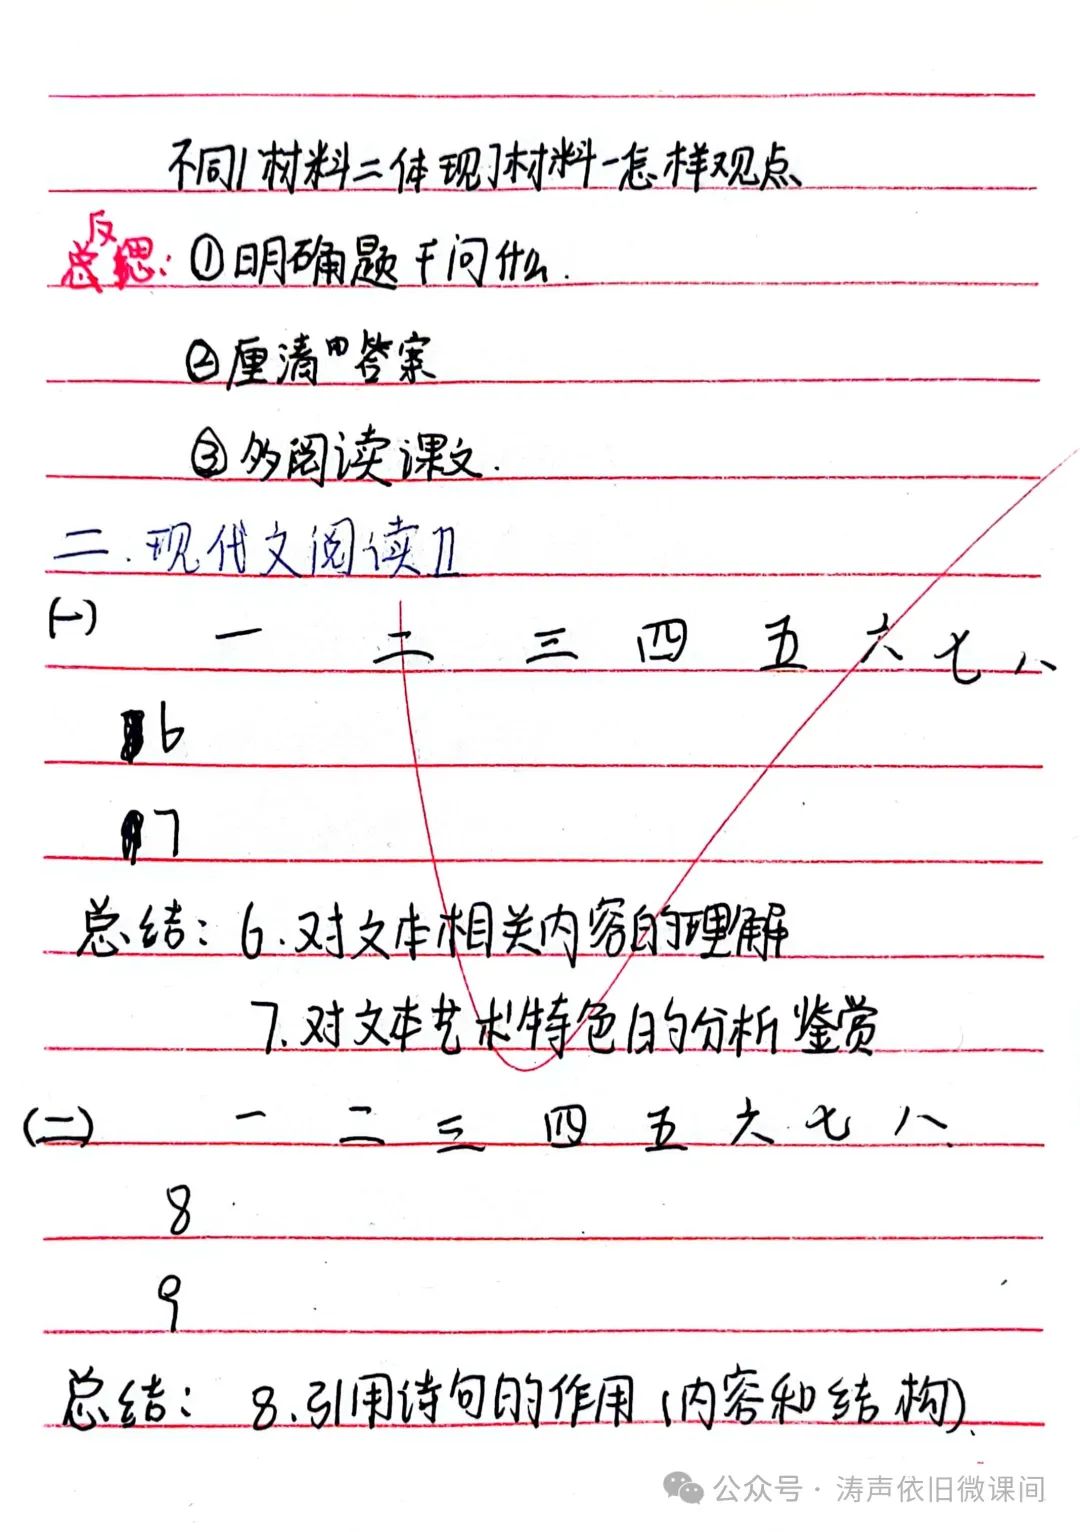 不同 材料二体现了材料一怎样观点
反
总思：①明确题干问什么.
②厘清 答案
③多阅读课文.
二.现代文阅读Ⅱ
(一) 一 二 三 四 五 六 七 八
6
7
总结：6.对文本相关内容的理解
7.对文本艺术特色的分析鉴赏
(二) 一 二 三 四 五 六 七 八
8
9
总结：8.引用诗句的作用(内容和结构).
公众号·涛声依旧微课间